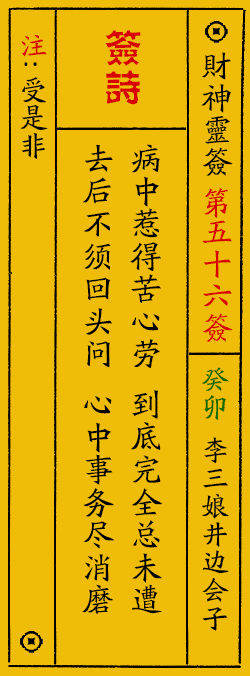 財神靈簽 第五十六簽
癸卯 李三娘井边会子
簽詩
病中惹得苦心劳 到底完全总未遭
去后不须回头问 心中事务尽消磨
注：受是非